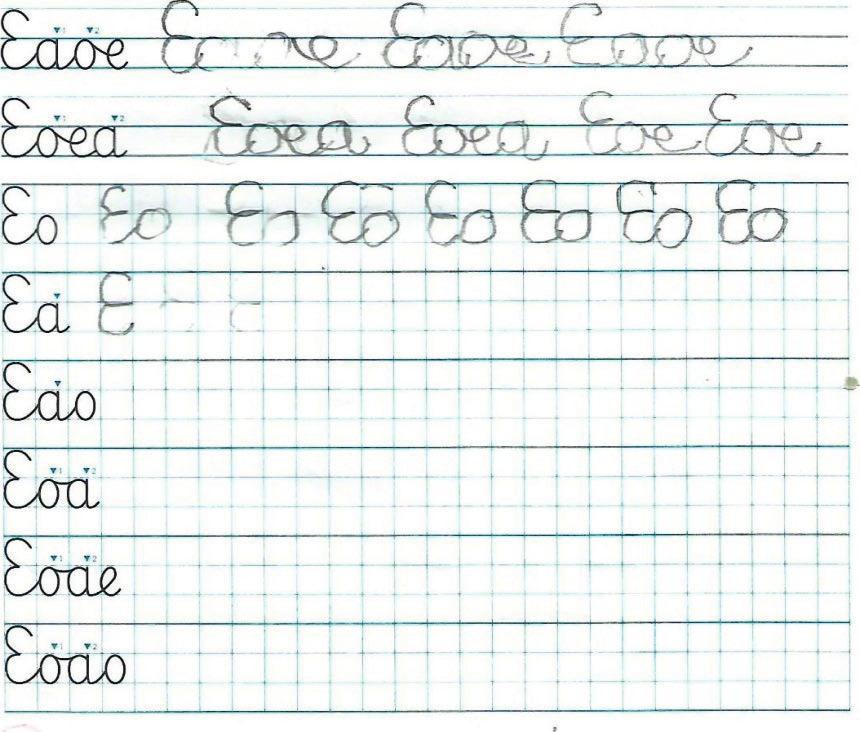 Eaoe Eaoe Eaoe
Eoea Eoea Eoea Eoe Eoe
Eo Eo Eo Eo Eo Eo Eo
Ea E
Eao
Eoa
Eoae
Eoao